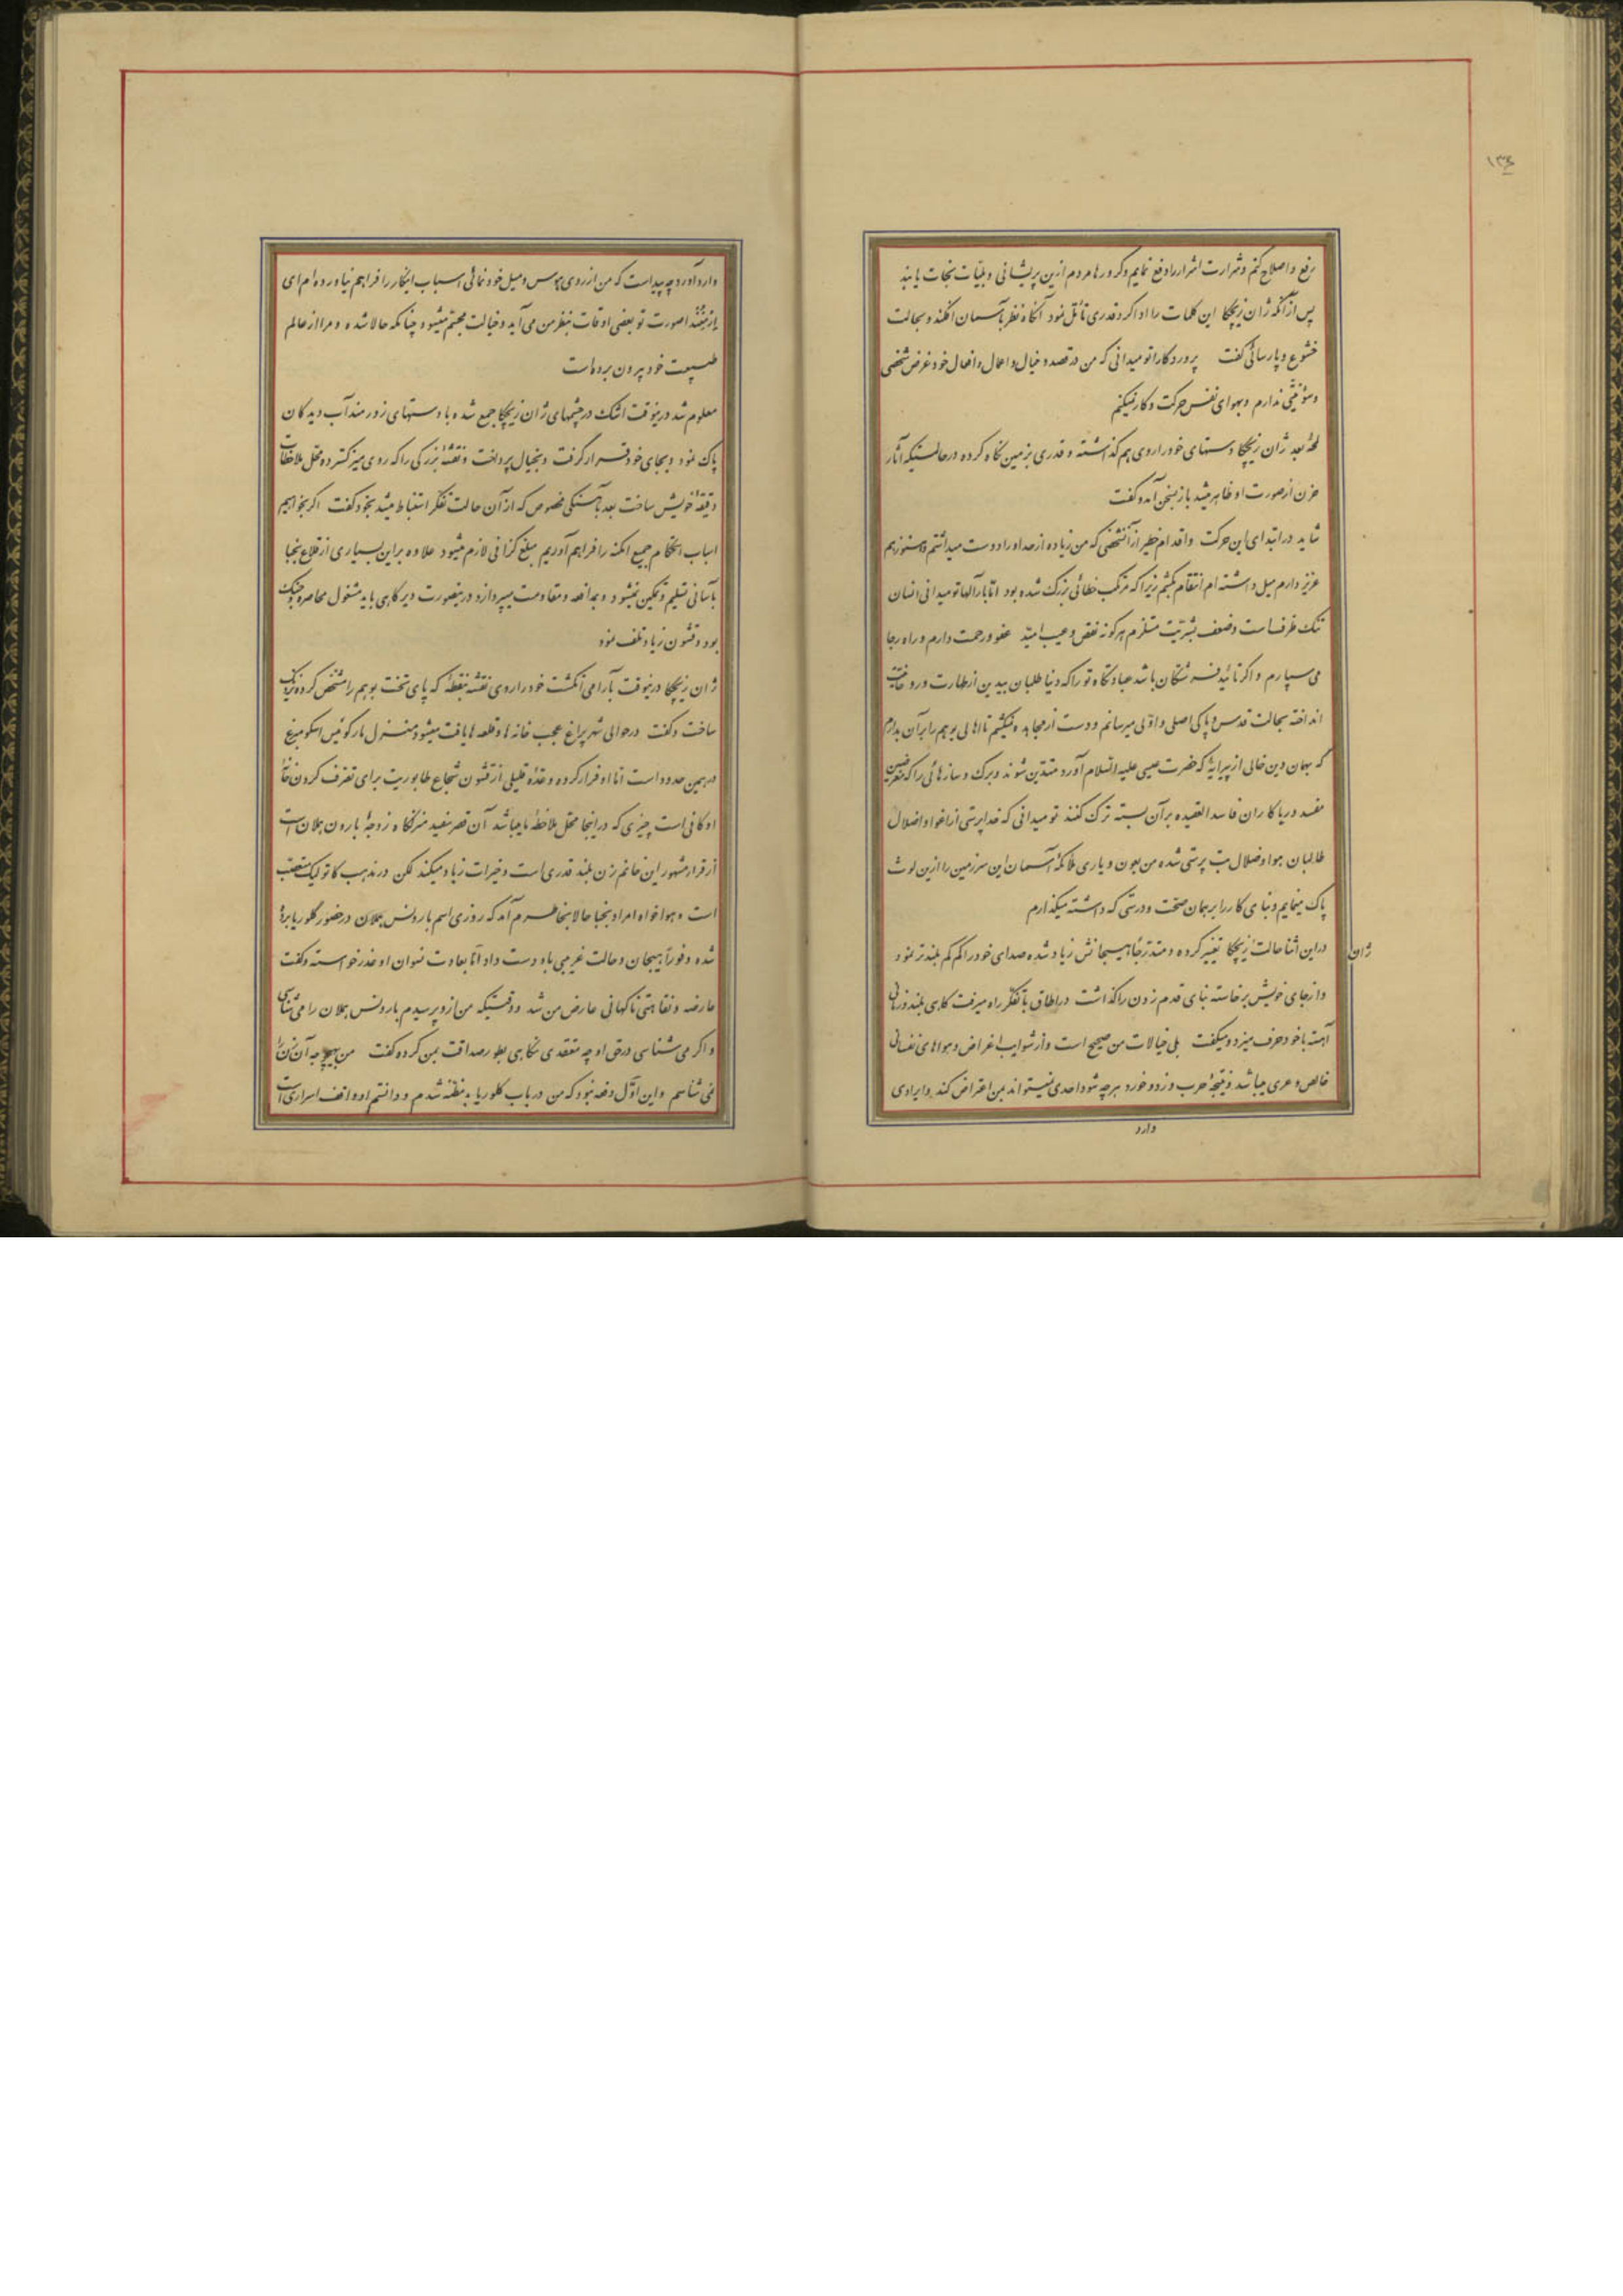 ۱۳۴
رفع و اصلاح کنم و شرارت اشرار را دفع نمایم و کرورها مردم ازین پریشانی و بلیّات نجات یابند
پس از آنکه ژان زیچکا این کلمات را ادا کرد قدری تأمّل نمود آنگاه نظر بآسمان افکند و بحالت
خشوع و پارسائی گفت پروردگارا تو میدانی که من در قصد و خیال و اعمال و افعال خود غرض شخصی
و سوء نیّتی ندارم و بهوای نفس حرکت و کار نمیکنم
لمحهٔ بعد ژان زیچکا دستهای خود را روی هم گذاشته و قدری بزمین نگاه کرده در حالتیکه آثار
حزن از صورت او ظاهر میشد باز بسخن آمد و گفت
شاید در ابتدای این حرکت و اقدام خطیر از آنشخصی که من زیاده از حد او را دوست میداشتم و هنوز هم
عزیز دارم میل داشته‌ام انتقام بکشم زیرا که مرتکب خطائی بزرگ شده بود امّا بارالها تو میدانی انسان
تنک ظرف است و ضعف بشریّت مستلزم هرگونه نقص و عیب امّید عفو و رحمت دارم و راه رجا
می سپارم و اگر تائید فرشتگان باشد عبادتگاه تو را که دنیا طلبان بیدین از طهارت و رونق
انداخته بحالت قدس و پاکی اصلی و اوّلی میرسانم و دست از مجاهده نمیکشم تا اهالی بوهم را بر آن بدارم
که بهمان دین خالی از پیرایهٔ که حضرت عیسی علیه السّلام آورد متدیّن شوند و برگ و سازهائی را که
مفسد و ریاکاران فاسد العقیده بر آن بسته ترک کنند تو میدانی که خداپرستی از اغوا و اضلال
طالبان هوا و ضلال بت پرستی شده من بعون و یاری ملائکهٔ آسمان این سرزمین را ازین لوث
پاک مینمایم و بنای کار را بر همان صحّت و درستی که داشته میگذارم
در این اثنا حالت زیچکا تغییر کرده و متدرّجاً هیجانش زیاد شده صدای خود را کم کم بلندتر نمود
ژان
و از جای خویش برخاسته بنای قدم زدن را گذاشت در اطاق با تفکّر راه میرفت گاهی بلند و زمانی
آهسته با خود حرف میزد و میگفت بلی خیالات من صحیح است و از شوایب اغراض و هواهای نفسانی
خالص و عری میباشد و نتیجهٔ حرب و زد و خورد هرچه شود احدی نمیتواند بمن اعتراض کند و ایرادی
وارد
وارد آورد چه پیداست که من از روی هوس و میل خودنمائی اسباب اینکار را فراهم نیاورده‌ام ای
صورت تو بعضی اوقات بنظر من می‌آید و خیالت مجسّم میشود چنانکه حالا شده و مرا از عالم
طبیعت خود بیرون برده است
معلوم شد در ینوقت اشک در چشمهای ژان زیچکا جمع شده با دستهای زورمند آب دیدگان
پاک نمود و بجای خود قرار گرفت و بخیال پرداخت و نقشهٔ بزرگی را که روی میز گسترده محل ملاحظات
دقیقهٔ خویش ساخت بعد بآهستگی مخصوص که از آن حالت تفکّر استنباط میشد بخود گفت اگر بخواهیم
اسباب استحکام جمیع امکنه را فراهم آوریم مبلغ گزافی لازم میشود علاوه بر این بسیاری از قلاع نجبا
بآسانی تسلیم و تمکین نمیشود و بمدافعه و مقاومت میپردازد در ینصورت دیرگاهی باید مشغول محاصره و جنگ
بود و قشون زیاد تلف نمود
ژان زیچکا در ینوقت بآرامی انگشت خود را روی نقشه بنقطهٔ که پای تخت بوهم را مشخّص کرده نزدیک
ساخت و گفت در حوالی شهر پراغ عجب خانه‌ها و قلعه‌ها یافت میشود منزل مارکوئیس اسکومبرغ
در همین حدود است امّا او فرار کرده و عدّهٔ قلیلی از قشون شجاع طابوریت برای تصرّف کردن خانهٔ
او کافی است چیزی که در اینجا محلّ ملاحظهٔ ما میباشد آن قصر سفید منزلگاه زوجهٔ بارون هملان است
از قرار مشهور این خانم زن بلند قدری است و خیرات زیاد میکند لکن در مذهب کاتولیک متعصّب
است و هواخواه امرا و نجبا حالا بخاطرم آمد که روزی اسم بارونس هملان در حضور گلوریا برده
شده و فوراً هیجان و حالت غریبی باو دست داد امّا بعادت نسوان او عذر خواسته و گفت
عارضه و نقاهتی ناگهانی عارض من شد و وقتیکه من ازو پرسیدم بارونس هملان را می شناسی
و اگر می شناسی در حق او چه معتقدی نگاهی بطور صداقت بمن کرده و گفت من بهیچوجه آن زن را
نمی شناسم و این اوّل دفعه نبود که من در باب گلوریا بدمظنّه شدم و دانستم او واقف اسراری است